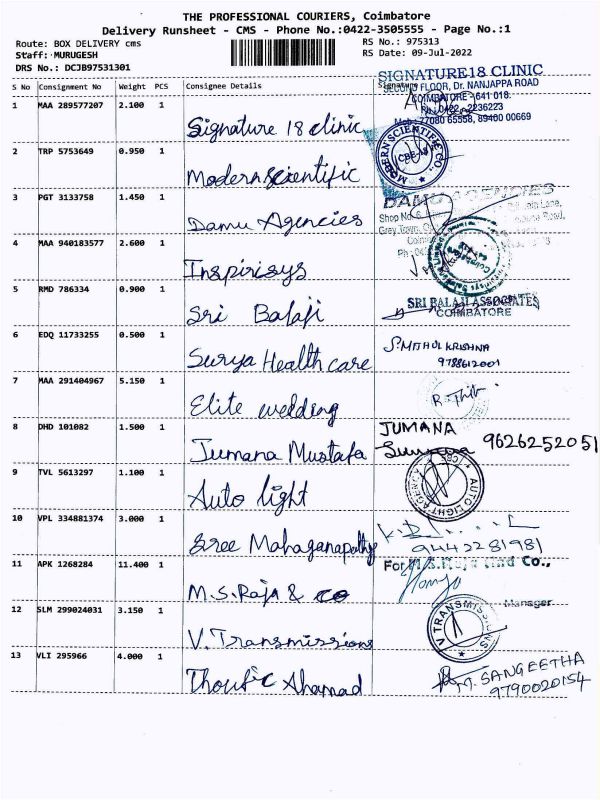 THE PROFESSIONAL COURIERS, Coimbatore
Delivery Runsheet - CMS - Phone No.:0422-3505555 - Page No.:1
Route: BOX DELIVERY cms RS No.: 975313
Staff: MURUGESH RS Date: 09-Jul-2022
DRS No.: DCJB97531301
S No Consignment No Weight PCS Consignee Details Signature
SIGNATURE18 CLINIC
SECOND FLOOR, Dr. NANJAPPA ROAD
COIMBATORE - 641 018.
Ph: 0422 - 2236223
Mob: 77080 65558, 89400 00669
1 MAA 289577207 2.100 1 Signature 18 clinic
2 TRP 5753649 0.950 1 Modern Scientific
MODERN SCIENTIFIC CO., CBE-18
3 PGT 3133758 1.450 1 Damu Agencies
DAMU AGENCIES
Shop No. 6
Grey Town,
4 MAA 940183577 2.600 1 Inspirisys
Coimbatore
5 RMD 786334 0.900 1 Sri Balaji
SRI BALAJI ASSOCIATES
COIMBATORE
6 EDQ 11733255 0.500 1 Surya Health care
S. MITHUL KRISHNA
9788612001
7 MAA 291404967 5.150 1 Elite wedding
8 DHD 101082 1.500 1 Jumana Mustafa
JUMANA
9626252051
9 TVL 5613297 1.100 1 Auto light
AUTO LIGHT AGENCY
10 VPL 334881374 3.000 1 Sree Mahaganapathy
9442281981
11 APK 1268284 11.400 1 M.S. Raja & co
For M.S. Raja And Co.,
Manager
12 SLM 299024031 3.150 1 V. Transmissions
V TRANSMISSIONS
13 VLI 295966 4.000 1 Thoufic Ahamad
SANGEETHA
9790020154